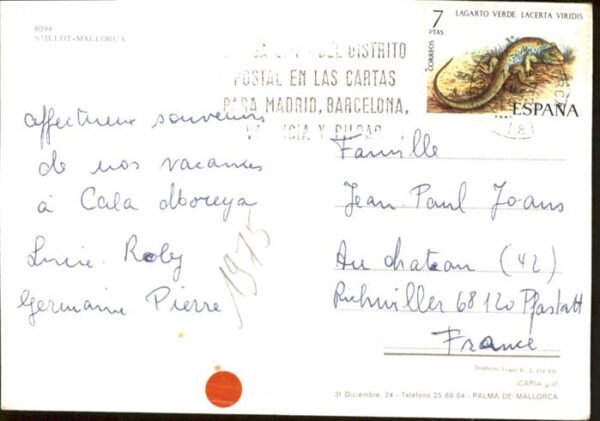 8094
S'ILLOT-MALLORCA
7
PTAS
LAGARTO VERDE. LACERTA VIRIDIS
CORREOS
ESPAÑA
DEL DISTRITO
POSTAL EN LAS CARTAS
PARA MADRID, BARCELONA,
Y BILBAO
affectueux souvenirs
de nos vacances
à Cala Moreya
Lucie Roby
Germaine Pierre
1975
Famille
Jean Paul Joans
Au chateau (42)
Richwiller 68120 Pfastatt
France
31 Diciembre, 24 - Teléfono 25 69 64 - PALMA DE MALLORCA